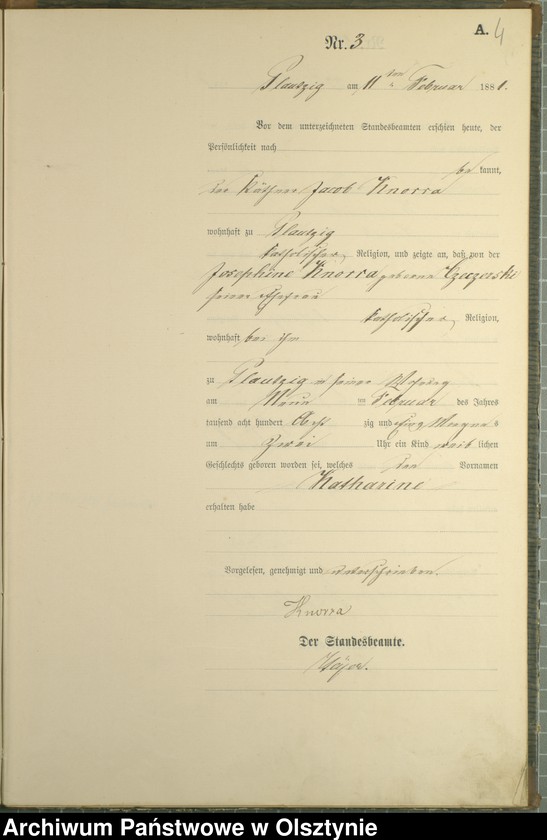 A. 4
Nr. 3.
Plautzig am 11 ten Februar 1881.
Vor dem unterzeichneten Standesbeamten erschien heute, der
Persönlichkeit nach
be kannt,
der Käthner Jacob Knorra
wohnhaft zu Plautzig
katholischer Religion, und zeigte an, daß von der
Josephine Knorra geborene
seiner Ehefrau
katholischer Religion,
wohnhaft bei ihm
zu Plautzig in seiner Wohnung
am Neun ten Februar des Jahres
tausend acht hundert Acht zig und
um Zwei Uhr ein Kind weib lichen
Geschlechts geboren worden sei, welches den Vornamen
Katharine
erhalten habe
Vorgelesen, genehmigt und unterschrieben.
Knorra
Der Standesbeamte.
Archiwum Państwowe w Olsztynie